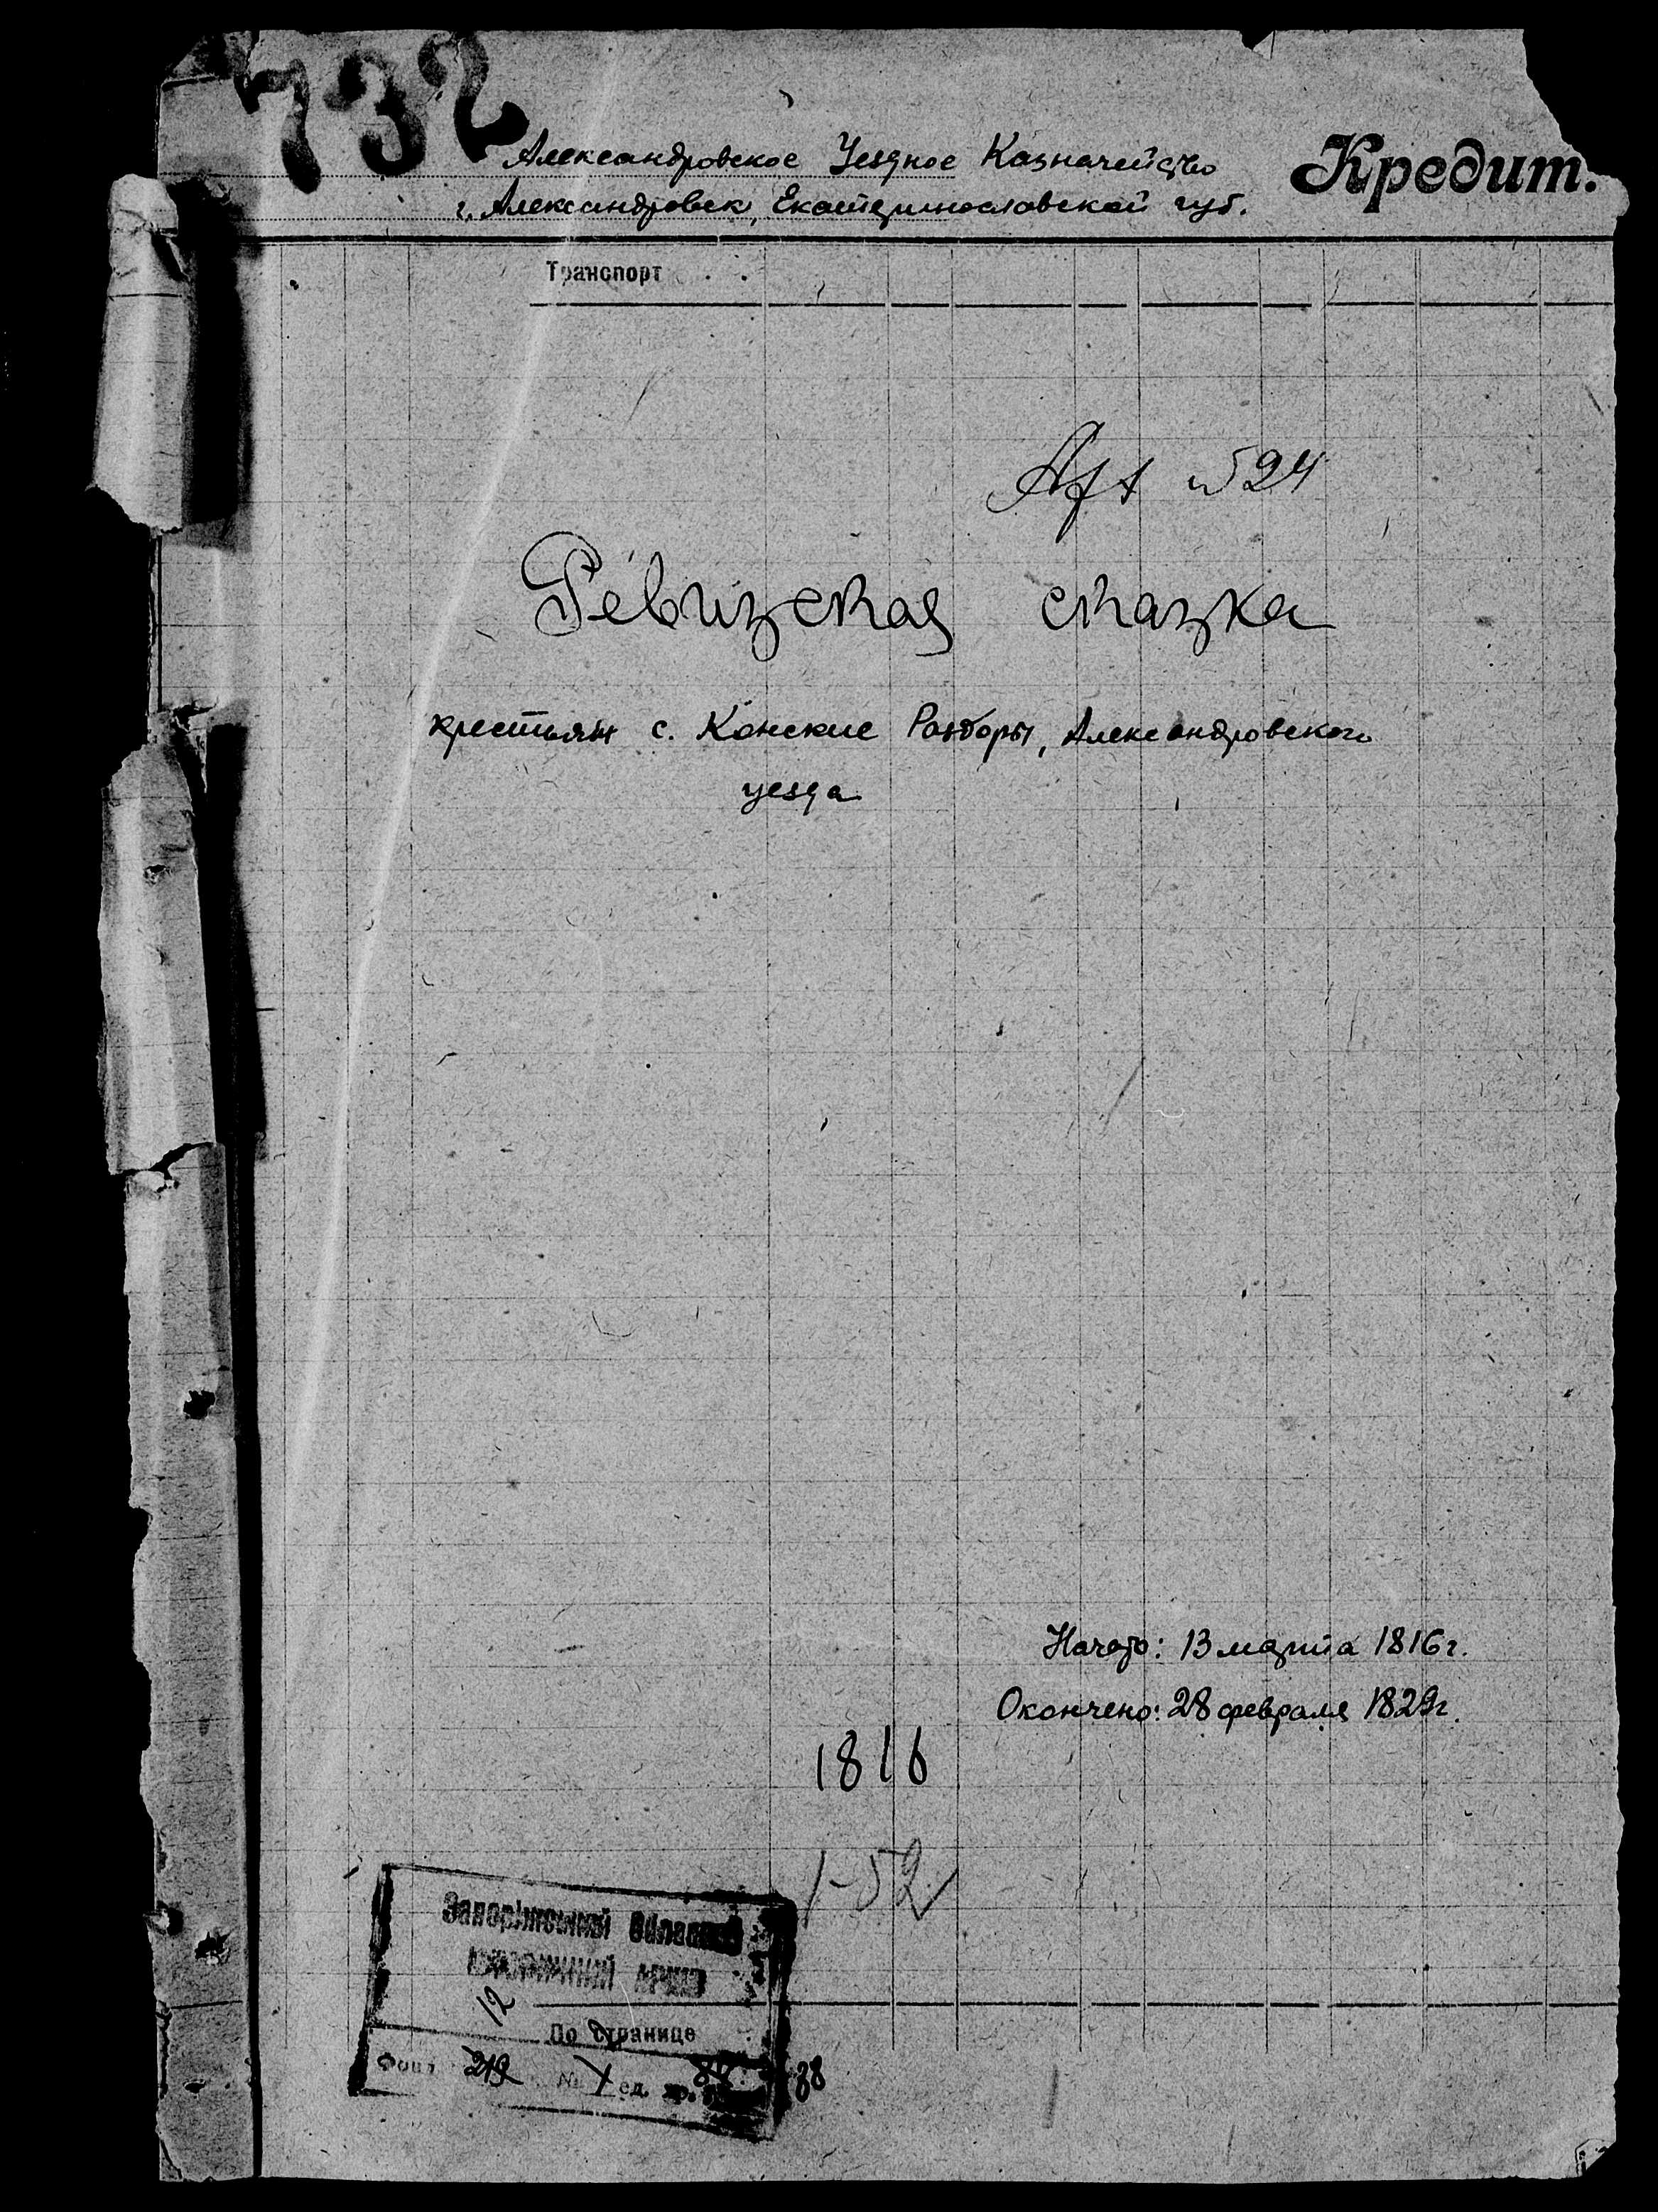 732
Александровское Уездное Казначейство
Кредит.
г. Александровск, Екатеринославской губ.
Транспорт . .
№ 524
Ревизская сказка
крестьян с. Конские Раздоры, Александровского
уезда
Начато: 13 марта 1816 г.
Окончено: 28 февраля 1829 г.
1816
1-52
Запорiжський Обласний
Iсторичний Архив
12
По странице
Фонд 219 № 1 ед. хр. 88